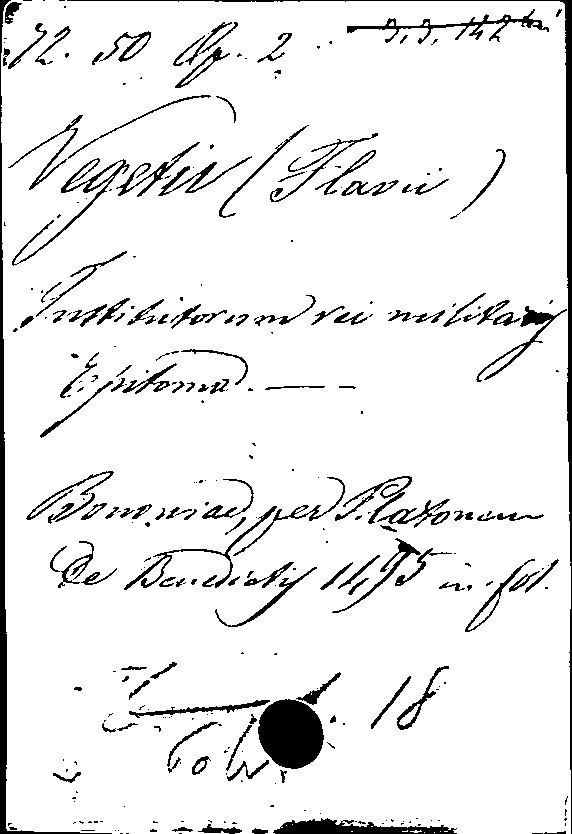 72. 50 Op. 2 3,3,142
Vegetii (Flavii)
Institutorum rei militarij
Epitoma. — —
Bononiae, per Platonem
De Benedictij 1495 in fol.
18